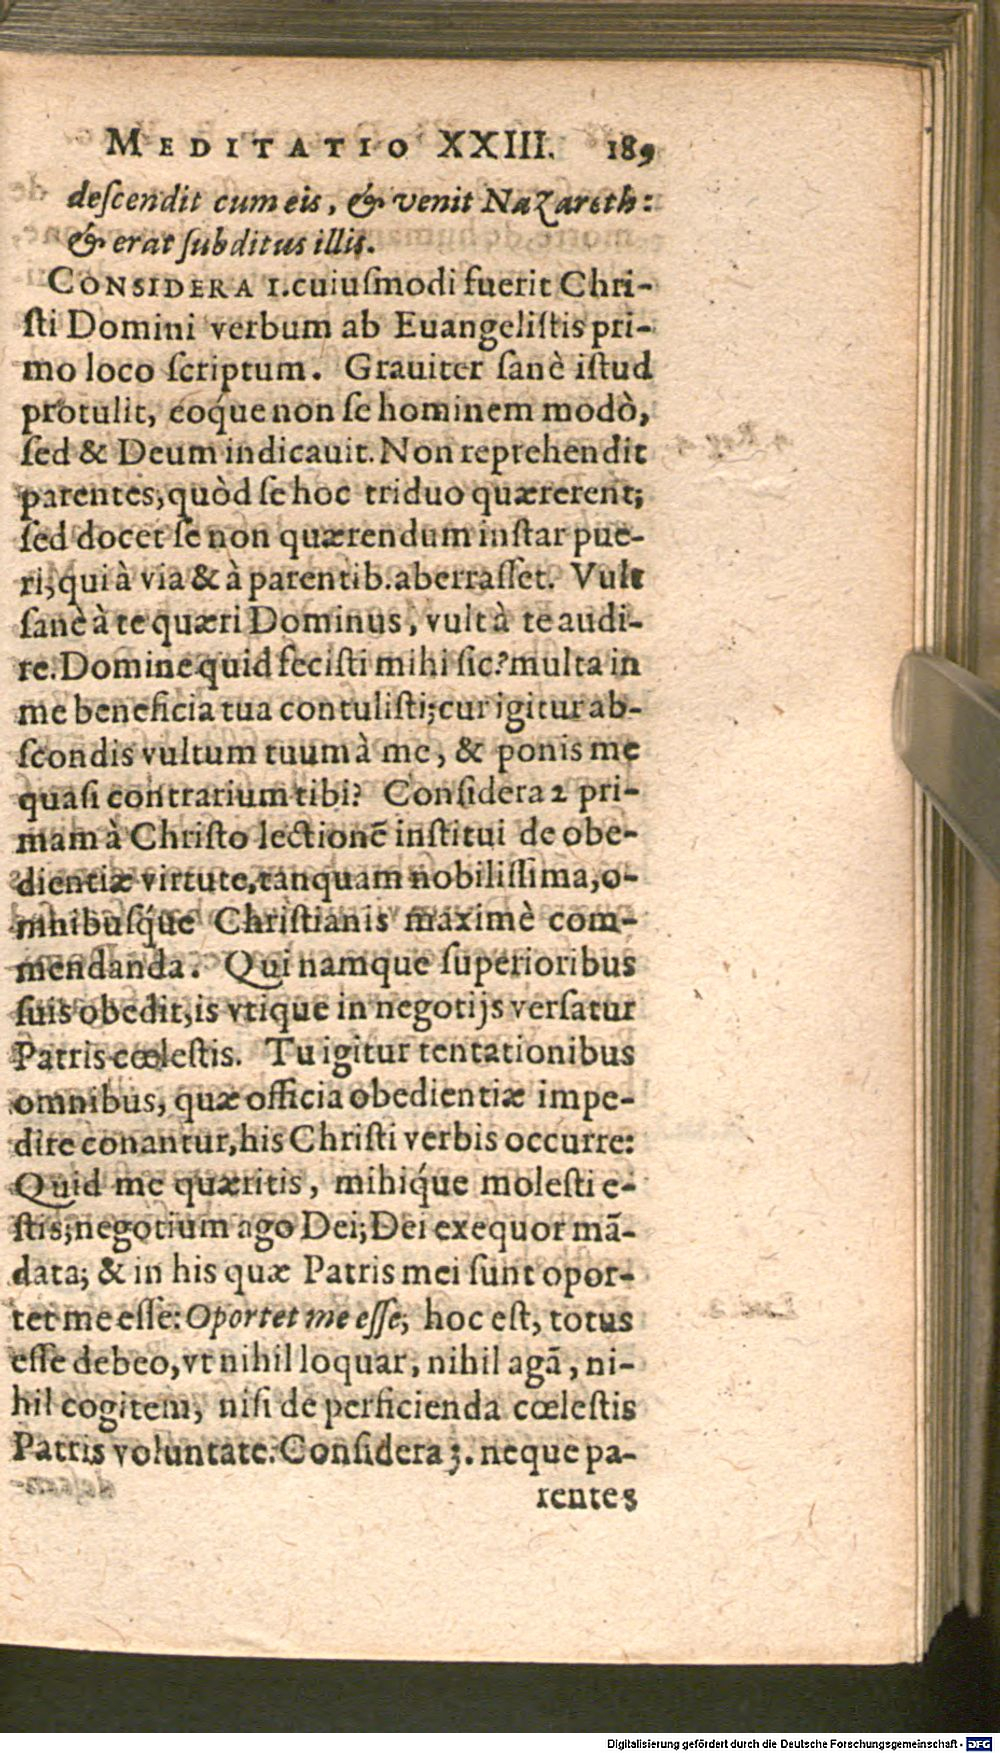 MEDITATIO XXIII. 189
deſcendit cum eis, & venit NaZareth:
& erat ſubditus illis.
CONSIDERA 1. cuiuſmodi fuerit Chri-
ſti Domini verbum ab Euangeliſtis pri-
mo loco ſcriptum. Grauiter ſanè iſtud
protulit, eoque non ſe hominem modò,
ſed & Deum indicauit. Non reprehendit
parentes, quòd ſe hoc triduo quærerent;
ſed docet ſe non quærendum inſtar pue-
ri, qui à via & à parentib. aberraſſet. Vult
ſanè à te quæri Dominus, vult à te audi-
re. Domine quid feciſti mihi ſic? multa in
me beneficia tua contuliſti; cur igitur ab-
ſcondis vultum tuum à me, & ponis me
quaſi contrarium tibi? Conſidera 2 pri-
mam à Chriſto lectionē inſtitui de obe-
dientiæ virtute, tanquam nobiliſſima, o-
mnibuſq́ue Chriſtianis maximè com-
mendanda. Qui namque ſuperioribus
ſuis obedit, is vtique in negotijs verſatur
Patris cœleſtis. Tu igitur tentationibus
omnibus, quæ officia obedientiæ impe-
dire conantur, his Chriſti verbis occurre:
Quid me quæritis, mihiq́ue moleſti e-
ſtis; negotium ago Dei; Dei exequor mā-
data; & in his quæ Patris mei ſunt opor-
tet me eſſe: Oportet me eſſe, hoc eſt, totus
eſſe debeo, vt nihil loquar, nihil agā, ni-
hil cogitem, niſi de perficienda cœleſtis
Patris voluntate. Conſidera 3. neque pa-
rentes
Digitalisierung gefördert durch die Deutsche Forschungsgemeinschaft - DFG